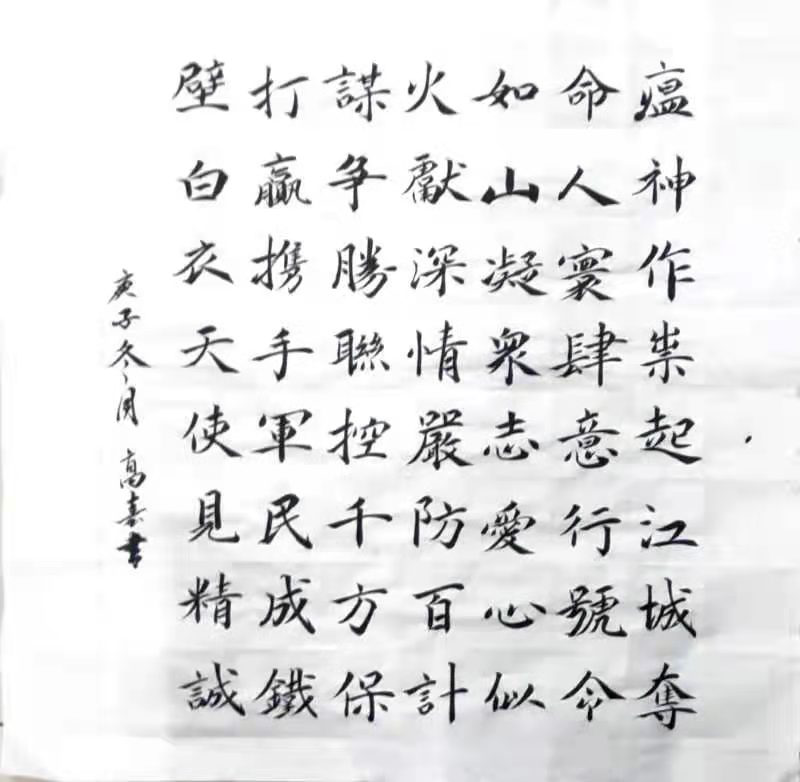 瘟神作祟起江城奪
命人寰肆意行號令
如山凝衆志愛心似
火獻深情嚴防百計
謀争勝聯控千方保
打贏携手軍民成鐵
壁白衣天使見精誠
庚子冬月 高喜書